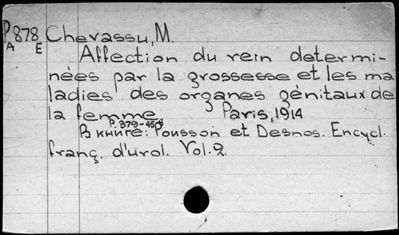 P878 Chevassu, M.
A E
Affection du rein determi-
nées par la grossesse et les ma
ladies des organes génitaux de
la femme Paris, 1914
P. 379-456
В книге: Pousson et Desnos. Encycl.
franç. d'urol. Vol. 2